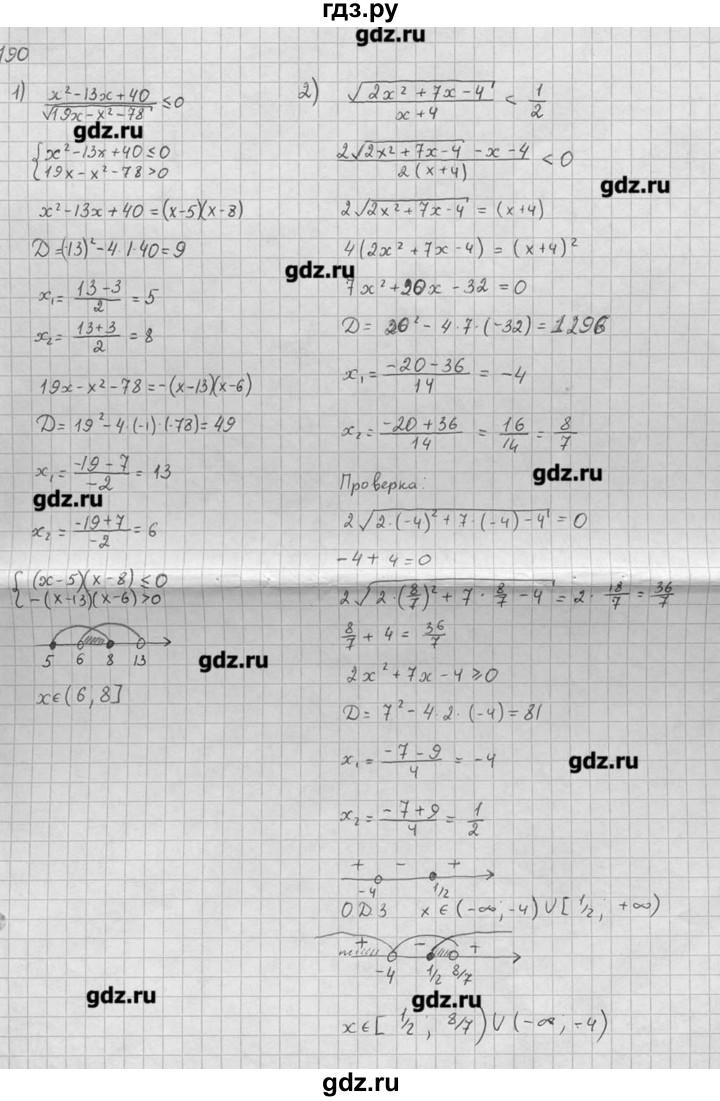 гдз.ру
gdz.ru
190
1) (x²-13x+40)/√(19x-x²-78) ≤ 0
gdz.ru
{ x²-13x+40 ≤ 0
{ 19x-x²-78 > 0
x²-13x+40 = (x-5)(x-8)
D = (-13)²-4·1·40 = 9
x₁ = (13-3)/2 = 5
x₂ = (13+3)/2 = 8
19x-x²-78 = -(x-13)(x-6)
D = 19²-4·(-1)·(-78) = 49
x₁ = (-19-7)/-2 = 13
gdz.ru
x₂ = (-19+7)/-2 = 6
{ (x-5)(x-8) ≤ 0
{ -(x-13)(x-6) > 0
5 6 8 13
gdz.ru
x∈(6,8]
gdz.ru
2) √(2x²+7x-4)/(x+4) < 1/2
(2√(2x²+7x-4) -x-4)/(2(x+4)) < 0
gdz.ru
2√(2x²+7x-4) = (x+4)
4(2x²+7x-4) = (x+4)²
gdz.ru
7x²+20x-32 = 0
D = 20²-4·7·(-32) = 1296
x₁ = (-20-36)/14 = -4
x₂ = (-20+36)/14 = 16/14 = 8/7
gdz.ru
Проверка:
2√(2·(-4)²+7·(-4)-4) = 0
-4+4=0
2√(2·(8/7)²+7·8/7-4) = 2·18/7 = 36/7
8/7+4 = 36/7
2x²+7x-4 ≥ 0
D = 7²-4·2·(-4) = 81
x₁ = (-7-9)/4 = -4
gdz.ru
x₂ = (-7+9)/4 = 1/2
+ - +
-4 1/2
ОДЗ x∈(-∞;-4)∪[1/2; +∞)
+ - +
-4 1/2 8/7
gdz.ru
x∈[1/2; 8/7)∪(-∞;-4)
gdz.ru